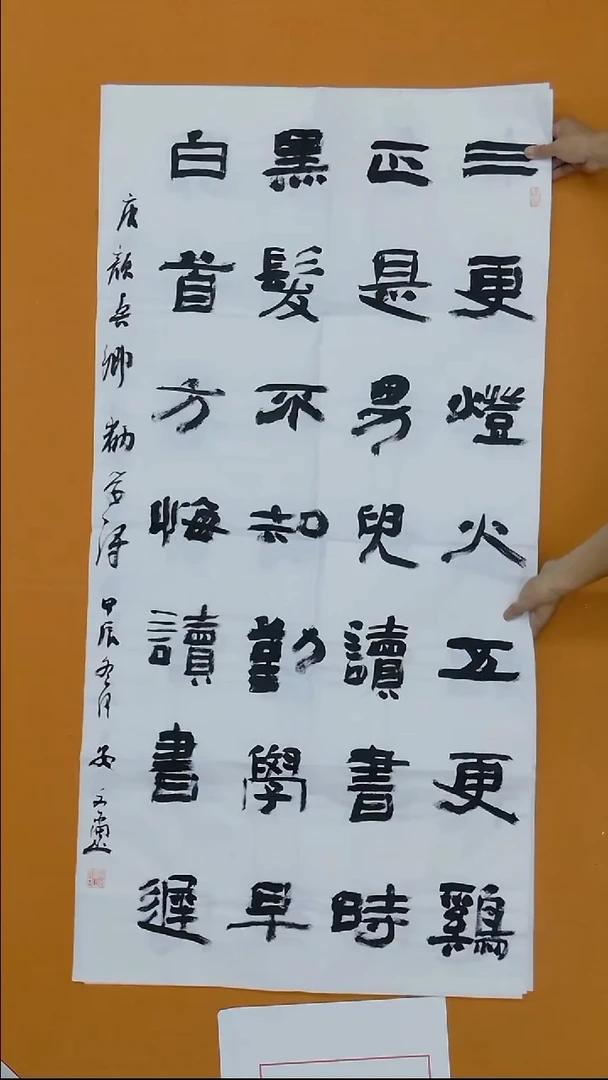 三更燈火五更鷄
正是男兒讀書時
黑髮不知勤學早
白首方悔讀書遲
唐顏真卿勸學詩 甲辰冬月 文